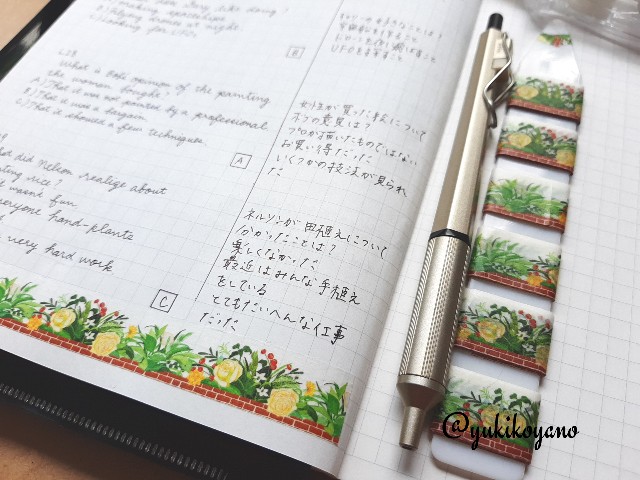 like doing?
making spaceships
drones at night
Looking for UFOs
B
What is Bob's opinion of the painting
the woman bought?
A) That it was not painted by a professional
B) That it was a bargain
C) That it shows a few techniques.
A
did Nelson realize about
rice?
wasn't fun
everyone hand-plants
very hard work
C
好きなことは?
こと
UFOをさがすこと
女性が買った絵について
ボブの意見は?
プロが描いたものではない
お買い得だった
いくつかの技法が見られ
た
ネルソンが田植えについて
分かったことは?
楽しくなかった
最近はみんな手植え
をしている
とてもたいへんな仕事
だった
@yukikoyano